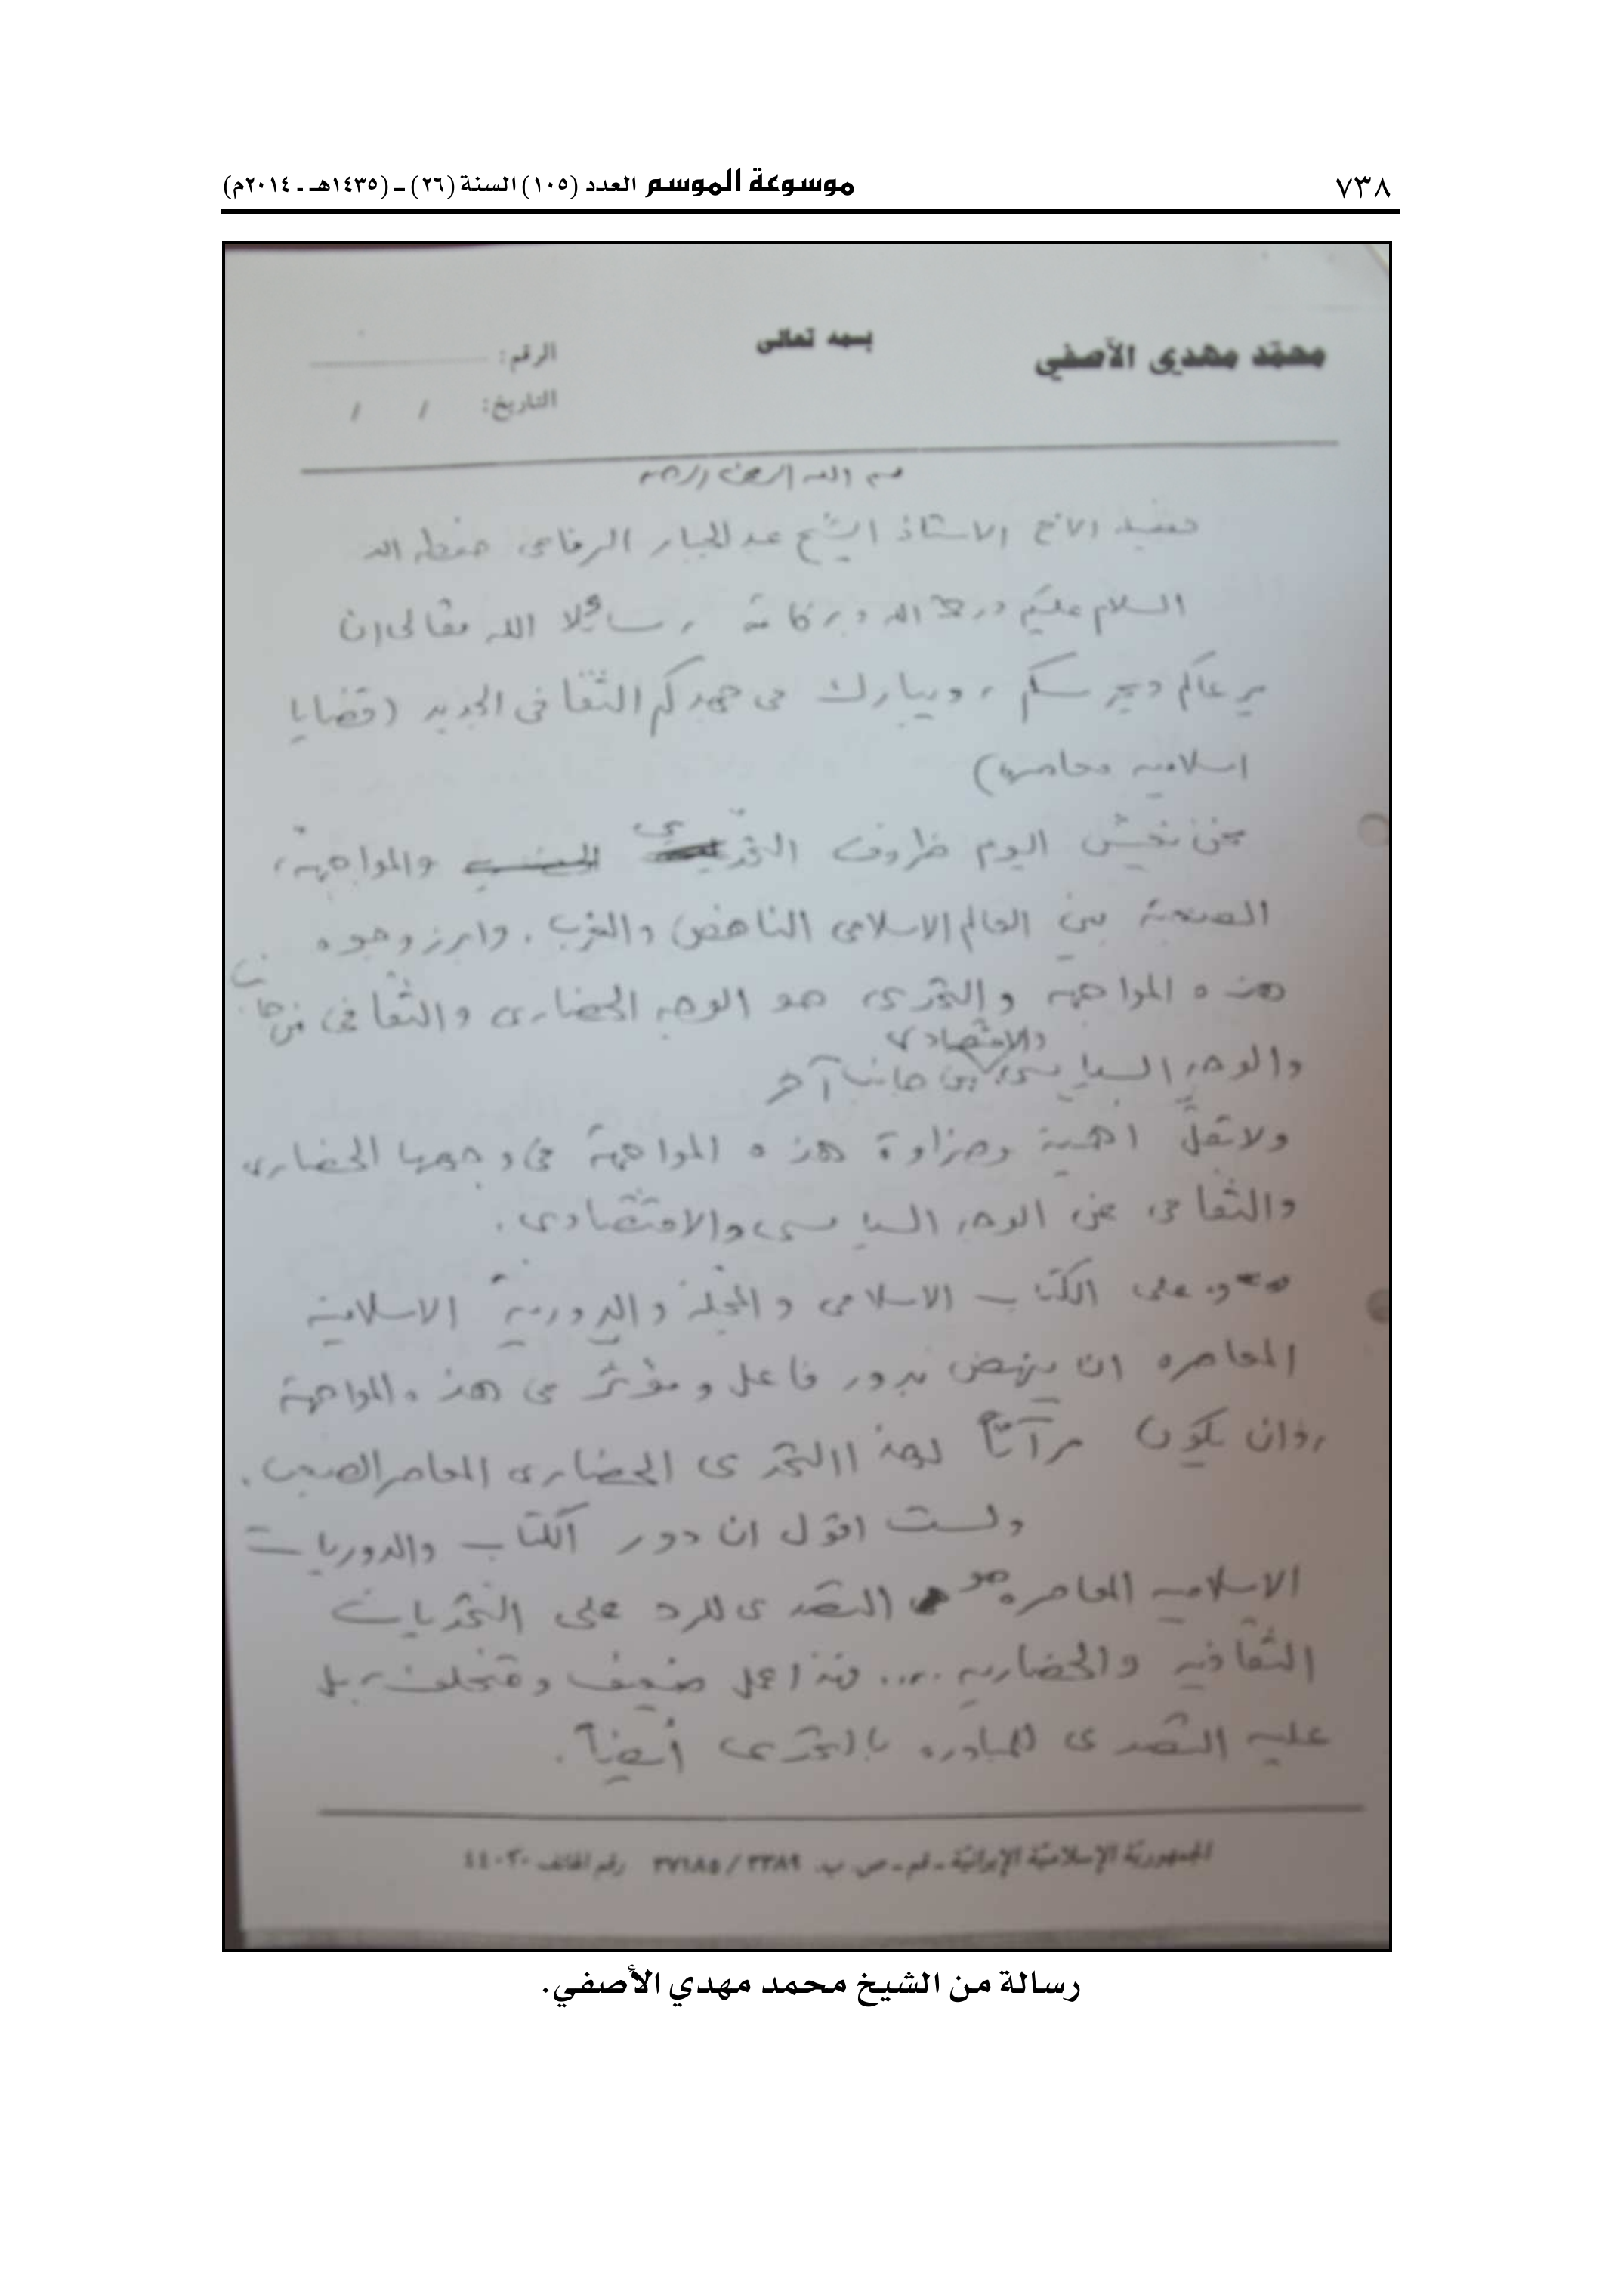 ٧٣٨
موسوعة الموسم العدد (١٠٥) السنة (٢٦) ـ (١٤٣٥هـ ـ ٢٠١٤م)
محمّد مهدي الآصفي
بسمه تعالى
الرقم:
التاريخ: / /
بسم الله الرحمن الرحيم
الاخ الاستاذ الشيخ عبد الجبار الرفاعي حفظه الله
السلام عليكم ورحمة الله وبركاته الله تعالى ان
يرعاكم ويحرسكم، ويبارك في جهدكم الثقافي الجديد (قضايا
اسلامية معاصرة)
نحن نعيش اليوم ظروف التحدي والمواجهة،
الصعبة بين العالم الاسلامي الناهض والغرب. وابرز وجوه
هذه المواجهة والتحدي هو الوجه الحضاري والثقافي من جانب
والوجه السياسي والاقتصادي من جانب آخر
ولا تقلّ اهمية وضراوة هذه المواجهة في وجهها الحضاري
والثقافي عن الوجه السياسي والاقتصادي.
على الكتاب الاسلامي والمجلة والدورية الاسلامية
المعاصره ان ينهض بدور فاعل ومؤثر في هذه المواجهة
وان يكون مرآتاً لهذا التحدي الحضاري المعاصر الصعب.
ولست اقول ان دور الكتاب والدوريات
الاسلاميه المعاصره هو التصدي للرد على التحديات
الثقافيه والحضاريه .... فهذا عمل ضعيف بل
عليه التصدي للمبادره بالتحدي أيضاً.
الجمهوريّة الإسلاميّة الإيرانيّة ـ قم ـ ص. ب. ٣٣٨٩ / ٣٧١٨٥ رقم الهاتف ٤٤٠٣٠
رسالة من الشيخ محمد مهدي الأصفي.